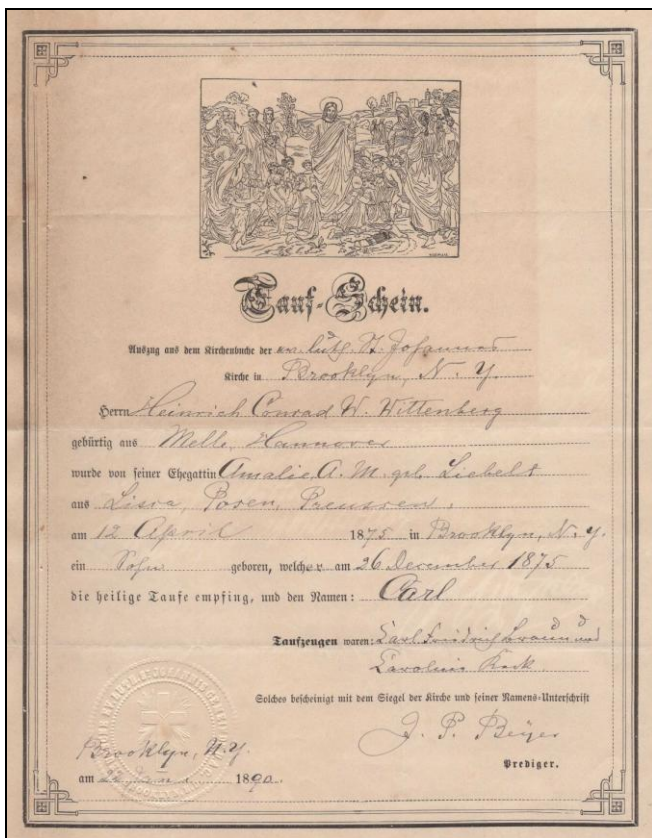 Tauf-Schein.
Auszug aus dem Kirchenbuche der ev. luth. St. Johannes
Kirche in Brooklyn, N. Y.
Herrn Heinrich Conrad W. Wittenberg
gebürtig aus Melle, Hannover
wurde von seiner Ehegattin Amalie A. M. geb. Liebelt
aus Lissa, Posen, Preussen,
am 12 April 1875 in Brooklyn, N. Y.
ein Sohn geboren, welcher am 26 December 1875
die heilige Taufe empfing, und den Namen: Carl
Taufzeugen waren: Carl Friedrich Braun und
Caroline Keck
Solches bescheinigt mit dem Siegel der Kirche und seiner Namens-Unterschrift
J. P. Beyer
Prediger.
Brooklyn, N.Y.
am 22 1890.